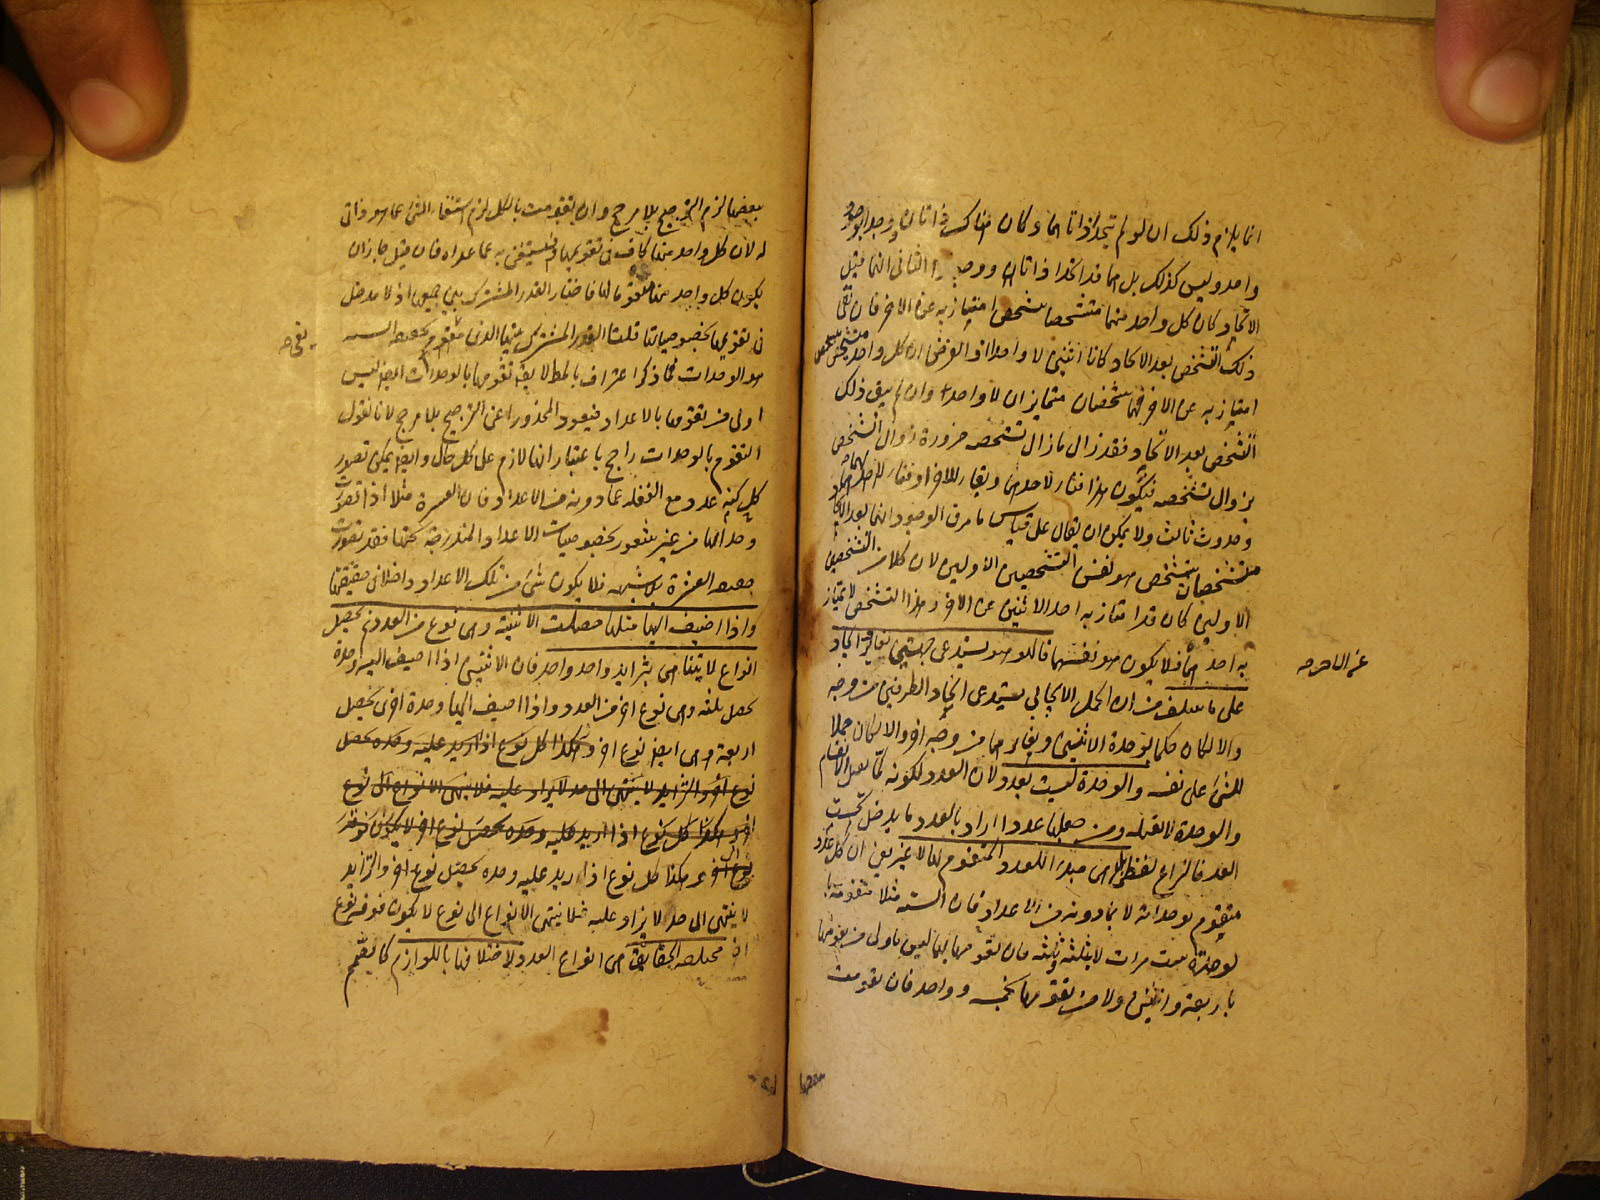 انما يلزم ذلك ان لو لم تتحد ذاتاهما وكان هناك ذاتان ووجد بوجود
واحد وليس كذلك بل هما قد اتحدا ذاتا ووجودا الثانى انهما قبل
الاتحاد كان كل واحد منهما متشخصا بتشخص امتاز به عن الاخر فان بقى
ذلك التشخص بعد الاتحاد كانا اثنين لا واحدا اذ الفرض ان كل واحد متشخص بتشخص
امتاز به عن الاخر فهما شخصان متمايزان لا واحدا وان لم يبق ذلك
التشخص بعد الاتحاد فقد زال ما زال تشخصه ضرورة زوال الشخص
بزوال تشخصه فيكون هذا فناء لاحدهما وبقاء للاخر او فناء لهما
وحدوث ثالث ولا يمكن ان يقال على قياس ما مر فى الوجود انهما بعد الاتحاد
متشخصان بتشخص هو نفس التشخصين الاولين لان كلا من التشخصين
الاولين كان قد امتاز به احد الاثنين عن الاخر وهذا التشخص لا يمتاز
به احدهما فلا يكون هو نفسهما فالهو هو يستدعى جهتى تغاير واتحاد
على ما سلف من ان الحمل الايجابى يستدعى اتحاد الطرفين من وجه
والا لكان حكما بوحدة الاثنين وتغايرهما من وجه اخر والا لكان حملا
للشئ على نفسه والوحدة ليست بعدد لان العدد لكونه كما يقبل الانقسام
والوحدة لا تقبله ومن جعلها عددا اراد بالعدد ما يدخل تحت
العد فالنزاع لفظى بل هى مبدا للعدد المتقوم بها لا غير يعنى ان كل عدد
متقوم بوحداته لا بما دونه من الاعداد فان الستة مثلا متقومة
بوحدة ست مرات لا بثلثة وثلثة فان تقومها بهما ليس باولى من تقومها
باربعة واثنين ولا من تقومها بخمسة وواحد فان تقومت
عن الماهر صح
ببعضها
ببعضها لزم الترجيح بلا مرجح وان تقومت بالكل لزم استغناء الشئ عما هو ذاتى
له لان كل واحد منها كاف فى تقويمها فيستغنى به عما عداه فان قيل جاز ان
يكون كل واحد منها مقوما لها باعتبار القدر المشترك بين جميعها اذ لا مدخل
فى تقويمها بخصوصياتها قلنا القدر المشترك بينها الذى متقوم به حقيقة الستة
هو الوحدات فما ذكر اعتراف بالمط لا يقال تقومها بالوحدات ايضا ليس
اولى من تقومها بالاعداد فيعود المحذور اعنى الترجيح بلا مرجح لانا نقول
التقوم بالوحدات راجح باعتبار انها لازم على كل حال وايضا يمكن تصور
كل كنه عدد مع الغفلة عما دونه من الاعداد فان العشرة مثلا اذا تصورت
وحداتها من غير شعور بخصوصيات الاعداد المندرجة تحتها فقد تصورت
حقيقة العشرة بلا شبهة فلا يكون شئ من تلك الاعداد داخلا فى حقيقتها
واذا اضيف اليها مثلها حصلت الاثنينية وهى نوع من العدد ثم يحصل
انواع لا يتناهى بتزايد واحد واحد فان الاثنين اذا اضيف اليه وحدة
حصل ثلثة وهى نوع اخر من العدد واذا اضيف اليها وحدة اخرى تحصل
اربعة وهى ايضا نوع اخر وهكذا كل نوع اذا زيد عليه وحدة يحصل
نوع اخر والتزايد لا ينتهى الى حد لا يزاد عليه فلا ينتهى الانواع الى نوع
اخر وهكذا كل نوع اذا زيد عليه وحدة يحصل نوع اخر لا يكون فوقه
نوع اخر وهكذا كل نوع اذا زيد عليه وحدة يحصل نوع اخر والتزايد
لا ينتهى الى حد لا يزاد عليه فلا ينتهى الانواع الى نوع لا يكون فوقه نوع
اخر مختلفة الحقائق هى انواع العدد لاختلافها باللوازم كالصمم